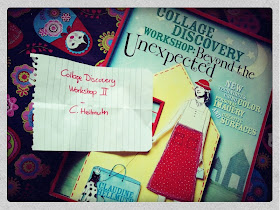 COLLAGE DISCOVERY
WORKSHOP: Beyond the
Unexpected
NEW
COLOR
IMAGERY
SURFACES
CLAUDINE
Collage Discovery
Workshop II
-
C. Hellmuth